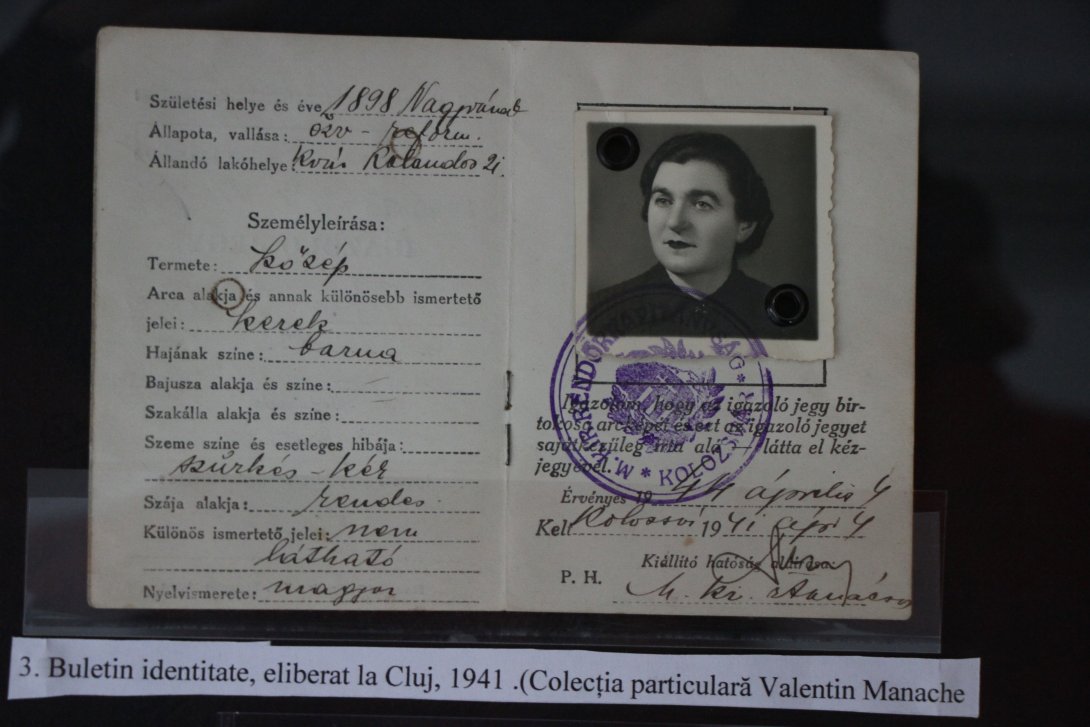 Születési helye és éve 1898 Nagyvárad
Állapota, vallása: özv - reform.
Állandó lakóhelye:
Személyleírása:
Termete: közép
Arca alakja és annak különösebb ismertető
jelei: kerek
Hajának színe: barna
Bajusza alakja és színe:
Szakálla alakja és színe:
Szeme színe és esetleges hibája:
szürkés-kék
Szája alakja: rendes
Különös ismertető jelei: nem
látható
Nyelvismerete: magyar
M. KIR. RENDŐRKAPITÁNYSÁG * KOLOZSVÁR *
Igazolom, hogy az igazoló jegy bir-
tokosa arcképét és ezt az igazoló jegyet
sajátkezűleg írta alá látta el kéz-
jegyével.
Érvényes 19 44 április 4
Kelt Kolozsvár 1941 ápr 4
Kiállító hatóság aláírása:
P. H.
M. kir.
3. Buletin identitate, eliberat la Cluj, 1941 .(Colecția particulară Valentin Manache